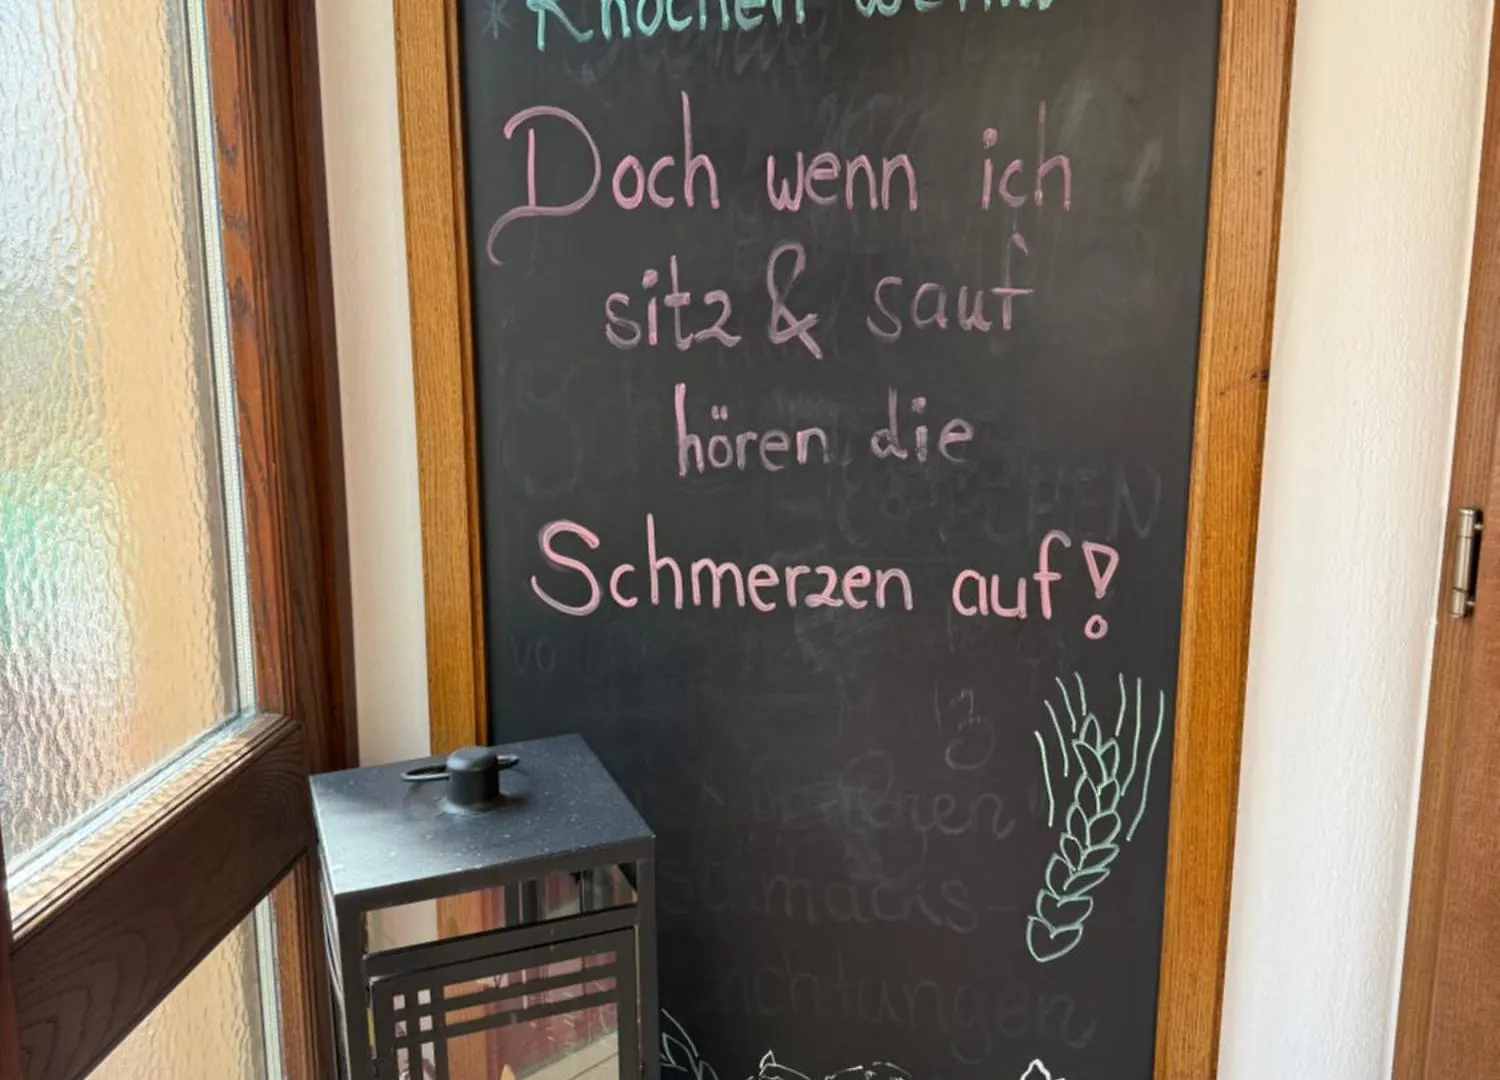 Knochen
Doch wenn ich
sitz & sauf
hören die
Schmerzen auf!